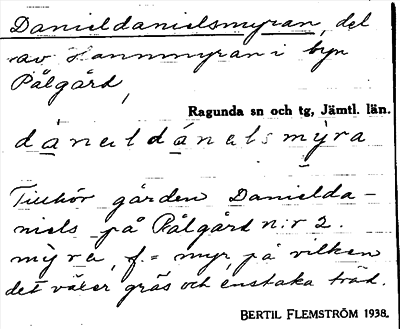 Danieldanielsmyran, del
av Hammmyran i byn
Pålgård,
Ragunda sn och tg, Jämtl. län.
dánɛildánɛlsmỳra
Tillhör gården Danielda-
niels på Pålgård n:r 2.
mỳra, f. = myr, på vilken
det växer gräs och enstaka träd.
BERTIL FLEMSTRÖM 1938.